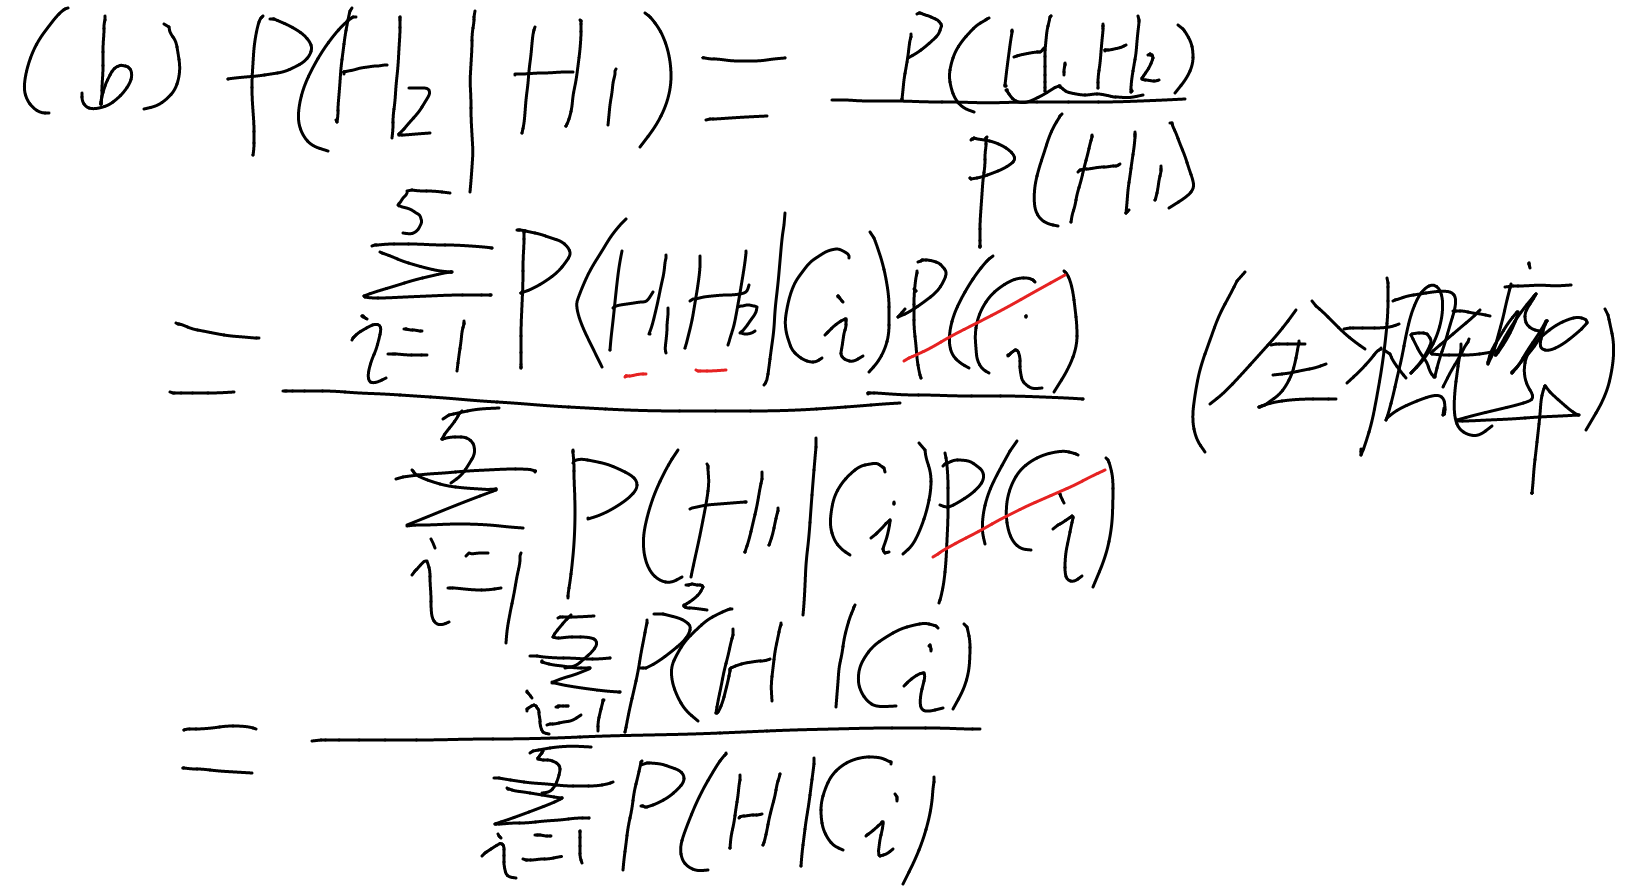 (b) P(H₂|H₁) = P(H₁H₂) / P(H₁)
= ∑_{i=1}^{5} P(H₁H₂|Ci)P(Ci) / ∑_{i=1}^{5} P(H₁|Ci)P(Ci) (全概率)
= ∑_{i=1}^{5} P²(H|Ci) / ∑_{i=1}^{5} P(H|Ci)